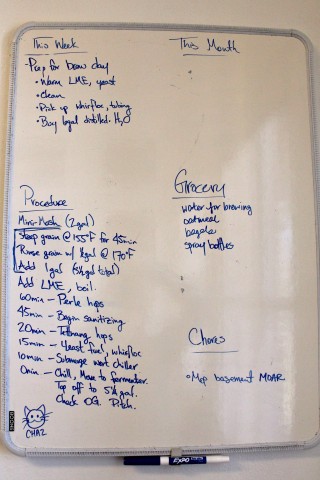 This Week
-Prep for brew day
• Warm LME, yeast
• clean
• Pick up whirfloc, tubing
• Buy 1 gal distilled H2O
This Month
Procedure
Mini-Mash (2 gal)
Steep grain @ 155°F for 45min
Rinse grain w/ ½ gal @ 170°F
Add 1 gal (3½ gal total)
Add LME, boil.
60min - Perle hops
45min - Begin sanitizing
20min - Tettnang hops
15min - Yeast fuel, whirfloc
10min - Submerge wort chiller
0min - Chill, Move to fermenter.
Top off to 5¼ gal.
Check OG. Pitch.
CHAZ
Grocery
water for brewing
oatmeal
bagels
spray bottles
Chores
• Mop basement MOAR
EXPO